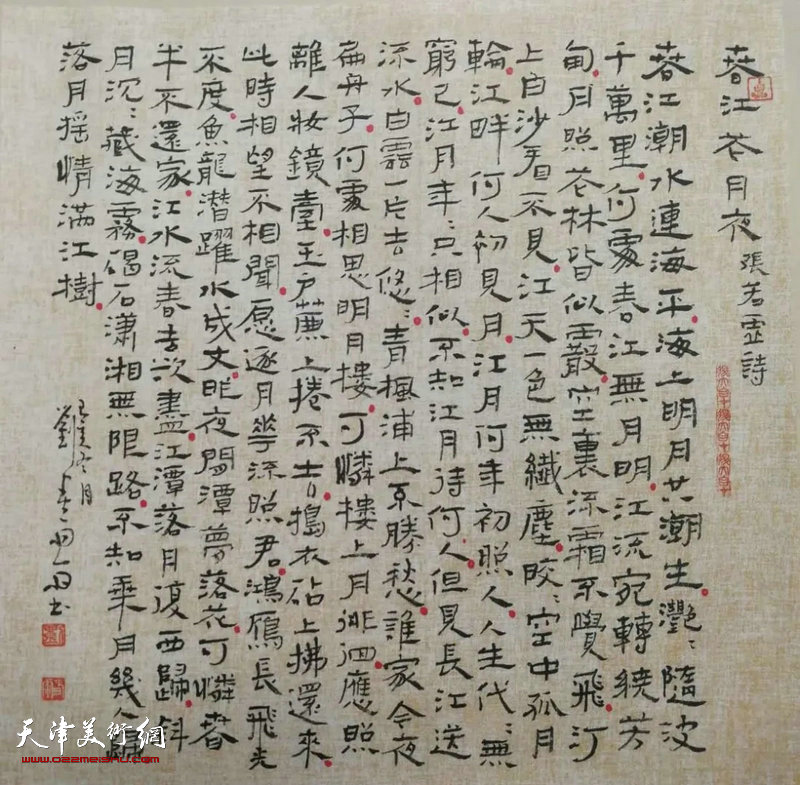 春江花月夜 張若虛詩
春江潮水連海平海上明月共潮生灔:隨波
千萬里何處春江無月明江流宛轉繞芳
甸月照花林皆似霰空裏流霜不覺飛汀
上白沙看不見江天一色無纖塵皎:空中孤月
輪江畔何人初見月江月何年初照人人生代:無
窮已江月年:只相似不知江月待何人但見長江送
流水白雲一片去悠:青楓浦上不勝愁誰家今夜
扁舟子何處相思明月樓可憐樓上月徘徊應照
離人妝鏡臺玉戶簾上捲不去擣衣砧上拂還來
此時相望不相聞愿逐月華流照君鴻鴈長飛光
不度魚龍潛躍水成文昨夜閒潭夢落花可憐春
半不還家江水流春去欲盡江潭落月復西歸斜
月沉:藏海霧碣石瀟湘無限路不知乘月幾人歸
落月摇情滿江樹
天津美術網
www.022meishu.com